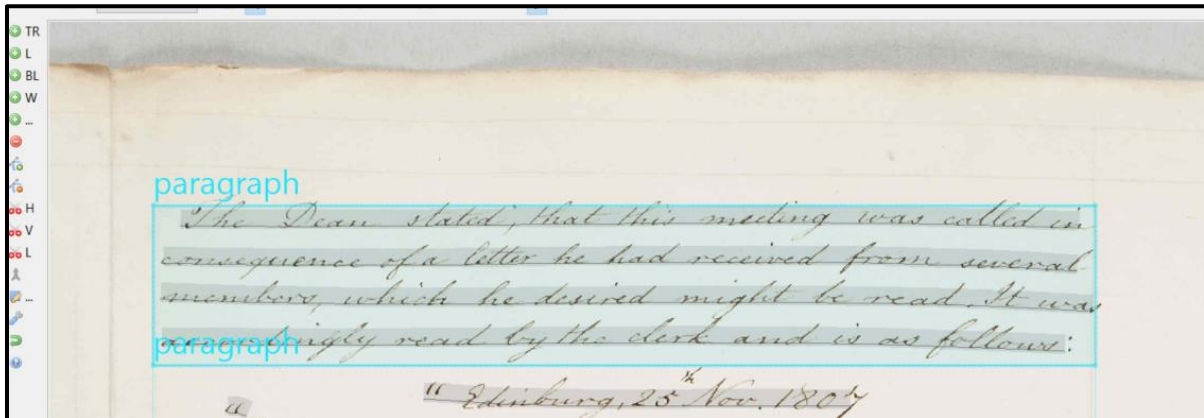 TR
L
BL
W
...
H
V
L
...
paragraph
The Dean stated, that this meeting was called in
consequence of a letter he had received from several
members, which he desired might be read. It was
accordingly read by the clerk and is as follows:
paragraph
" Edinburg, 25th Nov. 1807
"